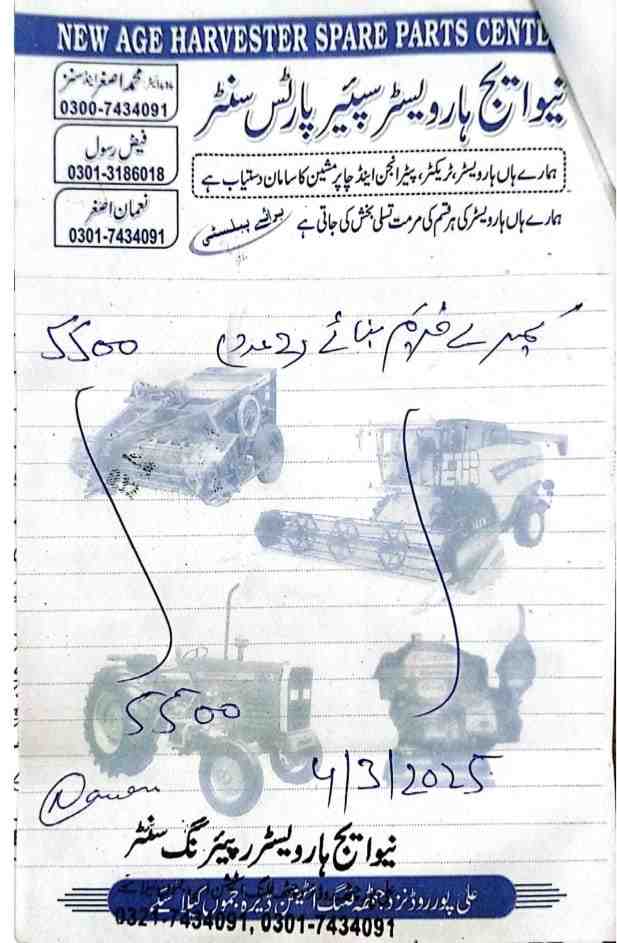 NEW AGE HARVESTER SPARE PARTS CENTE
نیو ایج ہارویسٹر سپئیر پارٹس سنٹر
محمد اصغر اینڈ سنز
0300-7434091
فیض رسول
0301-3186018
نعمان اصغر
0301-7434091
ہمارے ہاں ہارویسٹر، ٹریکٹر، پیٹر انجن اینڈ چاپر مشین کا سامان دستیاب ہے
ہمارے ہاں ہارویسٹر کی ہر قسم کی مرمت تسلی بخش کی جاتی ہے
فریم بنائے (2 عدد) 5500
5500
4/3/2025
نیو ایج ہارویسٹر رپیئرنگ سنٹر
علی پور روڈ نزد
0321-7434091, 0301-7434091